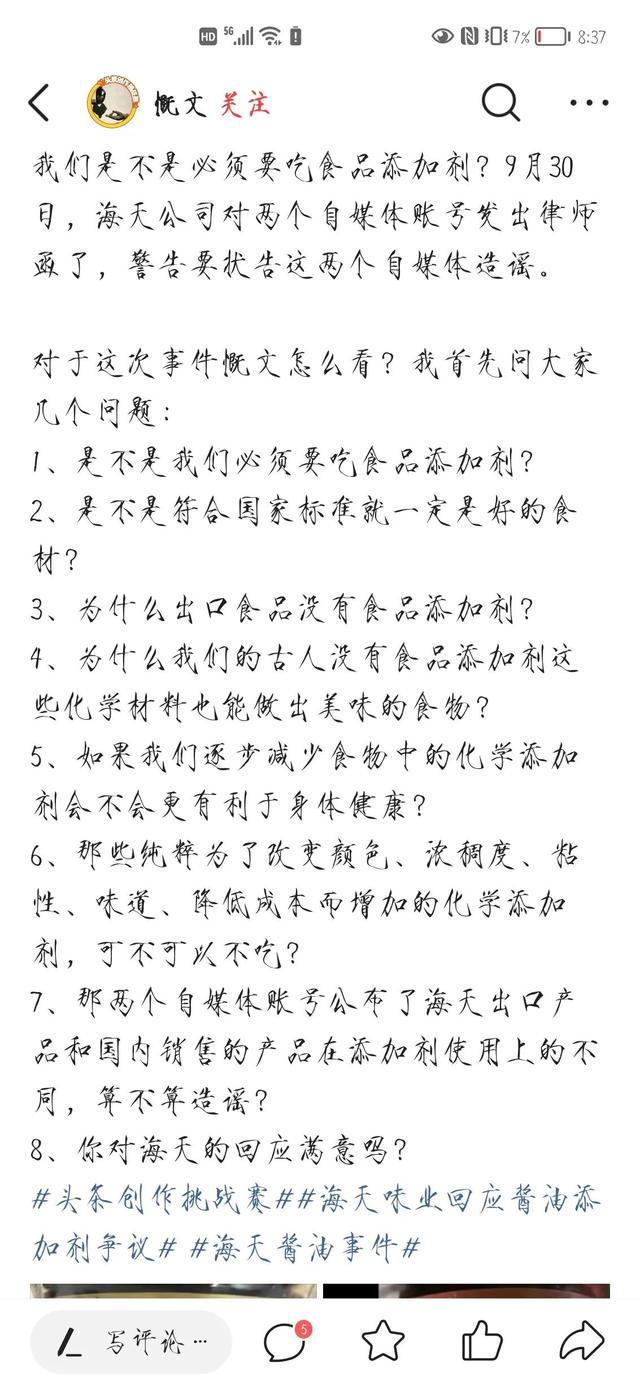 HD 5G 7% 8:37
慨文 关注
我们是不是必须要吃食品添加剂？9月30
日，海天公司对两个自媒体账号发出律师
函了，警告要状告这两个自媒体造谣。
对于这次事件慨文怎么看？我首先问大家
几个问题：
1、是不是我们必须要吃食品添加剂？
2、是不是符合国家标准就一定是好的食
材？
3、为什么出口食品没有食品添加剂？
4、为什么我们的古人没有食品添加剂这
些化学材料也能做出美味的食物？
5、如果我们逐步减少食物中的化学添加
剂会不会更有利于身体健康？
6、那些纯粹为了改变颜色、浓稠度、粘
性、味道、降低成本而增加的化学添加
剂，可不可以不吃？
7、那两个自媒体账号公布了海天出口产
品和国内销售的产品在添加剂使用上的不
同，算不算造谣？
8、你对海天的回应满意吗？
#头条创作挑战赛##海天味业回应酱油添
加剂争议# #海天酱油事件#
写评论… 5